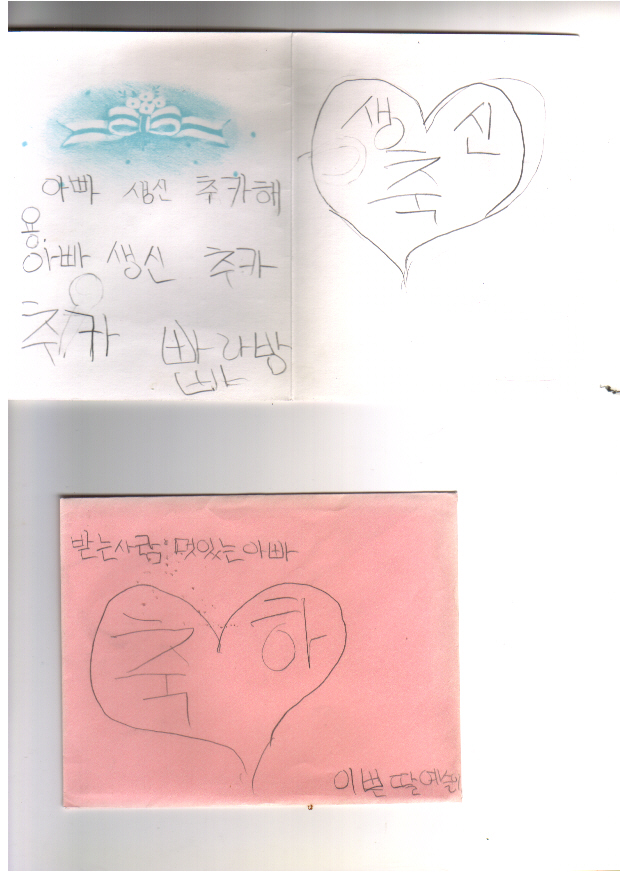 아빠 생신 추카해
용.
아빵 생신 추카
추카
생 신
축
받는사람: 멋있는아빠
축 하
이쁜 딸예슬